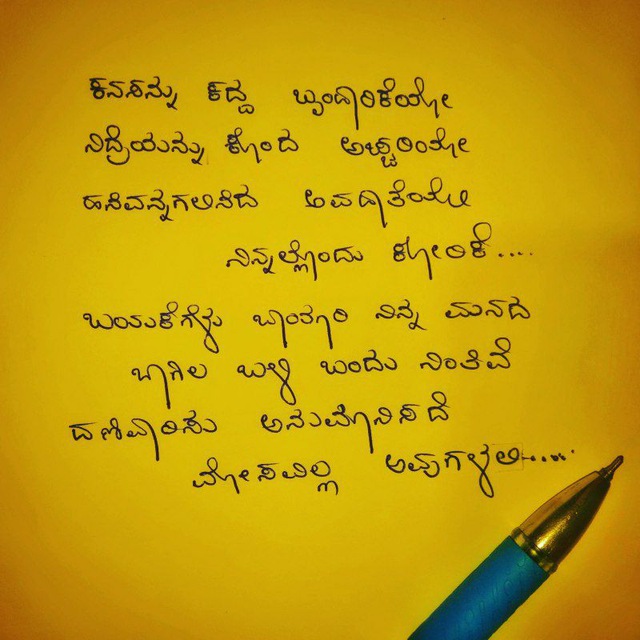 ಕನಸನ್ನು ಕದ್ದ ಬೃಂದಾರಿಕೆಯೋ
ನಿದ್ರೆಯನ್ನು ಕೊಂದ ಅಚ್ಚರಿಯೋ
ಹಸಿವನ್ನಗಲಿಸಿದ ಅವದಾತೆಯೋ
ನಿನ್ನಲ್ಲೊಂದು ಕೋರಿಕೆ....
ಬಯಕೆಗಳು ನಿನ್ನ ಮನದ
ಬಾಗಿಲ ಬಳಿ ಬಂದು ನಿಂತಿವೆ
ದಣಿವಾರಿಸು ಅನುಮಾನಿಸದೆ
ಮೋಸವಿಲ್ಲ ಅವುಗಳಲಿ......